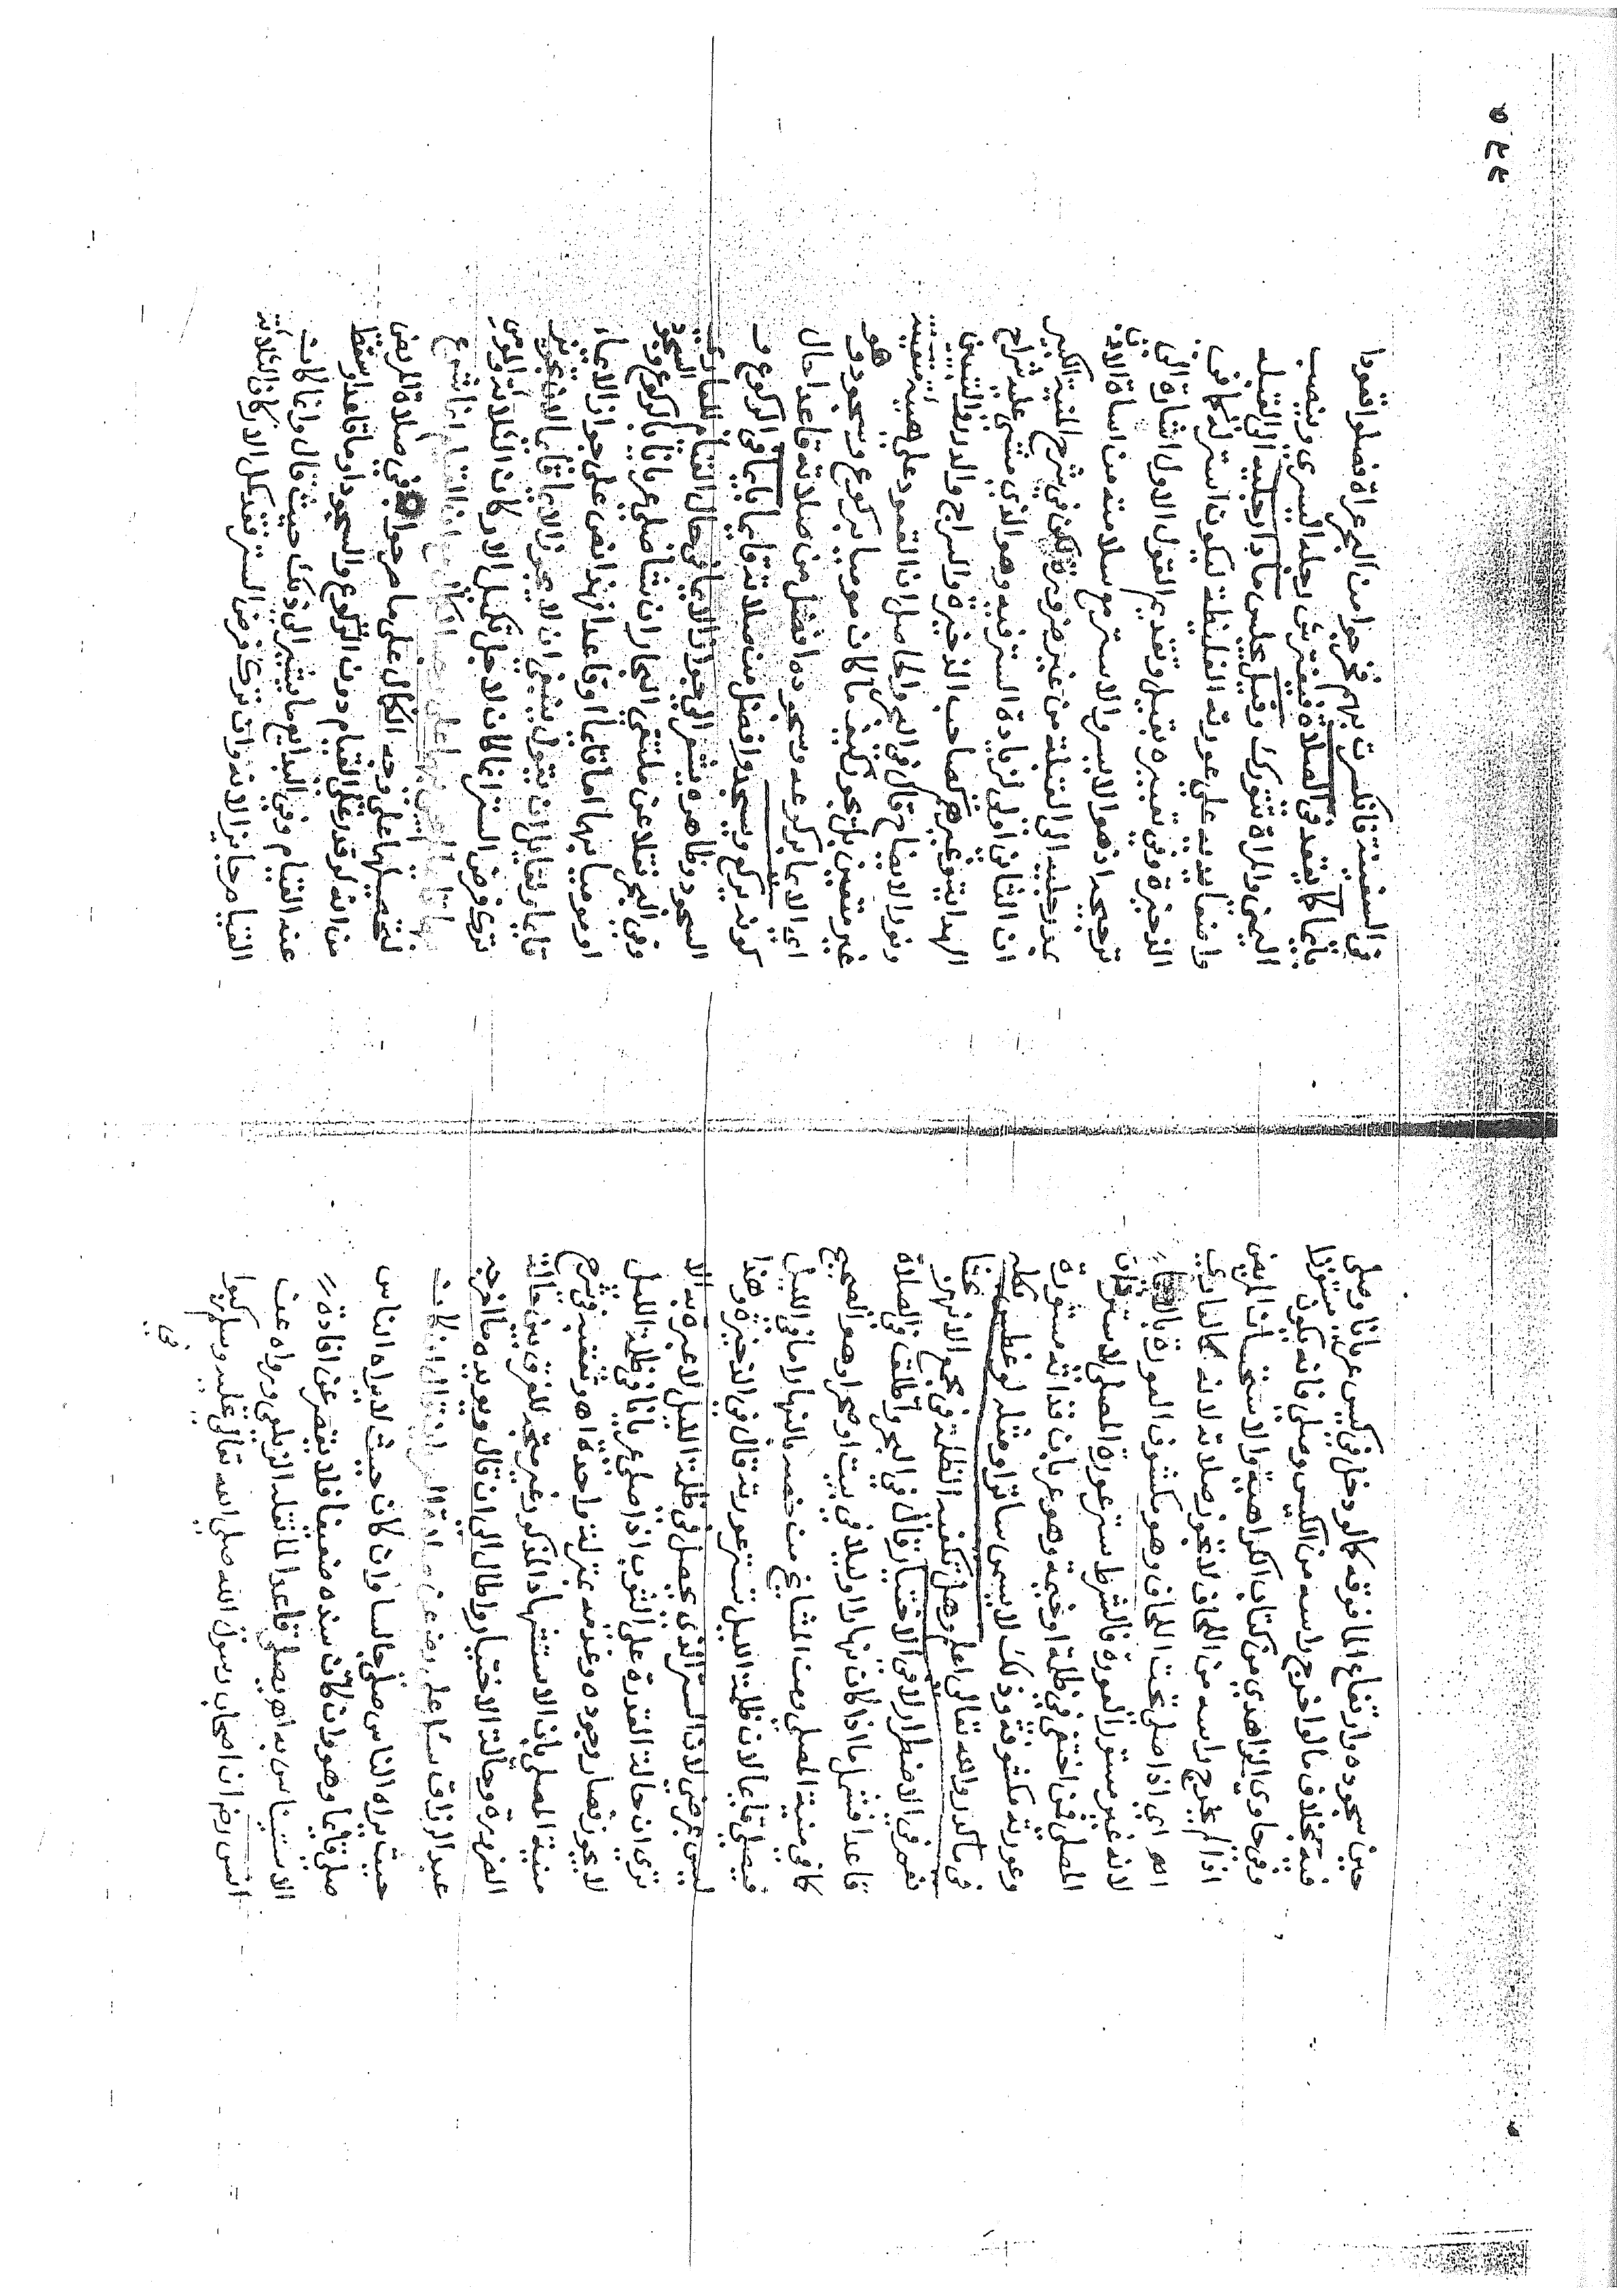 حين سجوده وارتفاع الماء فوقه كما لو دخل في كيس عريانا وصلى
فيه بخلاف ما لو اخرج راسه من الكيس وصلى فانه يكون مستورا
وفي حاوي الزاهدي من كتاب الكراهية والاستحسان المريض
اذا لم يخرج راسه من اللحاف لا تجوز صلاته لانه كالعاري
اهـ اي اذا صلى تحت اللحاف وهو مكشوف العورة بالايماء
لانه غير مستور العورة فالشرط ستر عورة المصلي لا ستر ذات
المصلي فمن اختفى في ظلمة او خيمة وهو عريان فذاته مستورة
وعورته مكشوفة وذلك لا يسمى ساترا ومثله لو غطس
في ماء كدر والله تعالى اعلم وهل تكفيه الظلمة في مجمع الانهر بحثا
نعم في الاضطرار لا في الاختيار قال في البحر واطلق في الصلاة
قاعدا فشمل ما اذا كان نهارا او ليلا في بيت او صحرا وهو الصحيح
كما في منية المصلي ومن المشايخ من خصه بالنهار اما في الليل
فيصلي قايما لان ظلمة الليل تستر عورته قال في الذخيرة وهذا
ليس بمرضي لان الستر الذي يحصل في ظلمة الليل لا عبرة به الا
ترى ان حالة القدرة على الثوب اذا صلى عريانا في ظلمة الليل
لا يجوز فصار وجوده وعدمه بمنزلة واحدة اهـ وتعقبه في شرح
منية المصلي بان الاستشهاد المذكور غير متجه للفرق بين حالة
الضرورة وحالة الاختيار واطال الى ان قال ويؤيده ما اخرجه
عبد الرزاق سئل علي رضي عن صلاة العريان فقال ان كان
حيث يراه الناس صلى جالسا وان كان حيث لا يراه الناس
صلى قايما وهو وان كان سنده ضعيفا فلا يقصر عن افادة
الاستيناس به اهـ يصلي قاعدا لما نقله الزيلعي ورواه عن
انس رضي ان اصحاب رسول الله صلى الله تعالى عليه وسلم ركبوا
في
في السفينة فانكسرت بهم فخرجوا من البحر عراة فصلوا قعودا
بايماء كما يقعد في الصلاة فيفترش رجله اليسرى وينصب
اليمنى والمراة تتورك وقيل يجلس مادا رجليه الى القبلة
واضعا يديه على عورته الغليظة ليكون استر له كما في
الذخيرة وفي تعبيره بقيل وتقديم القول الاول اشارة الى
ترجيحه اذ هو الايسر والاستر مع سلامته من اساءة الادب
بمد رجليه الى القبلة من غير ضرورة لكن في شرح المنية الكبير
ان الثاني اولى لزيادة الستر فيه وهو الذي مشى عليه شراح
الهداية وغيرهم كصاحب الذخيرة والسراج والدرر
ونور الايضاح قال في البحر والحاصل ان القعود على هيئة متعينة
غير متعين بل يجوز كيف ما كان موميا بركوع وسجود وهو
اي الايماء بركوعه وسجوده افضل من صلاته قاعدا حال
كونه يركع ويسجد وافضل من صلاته قايما بايماء في الركوع و
السجود وظاهره يشير الى جواز الايماء في حال القيام
وفي البحر نقلا عن ملتقى البحار ان شا صلى عريانا بالركوع والسجود
او موميا بهما اما قايما او قاعدا فهذا نص على جواز الايماء
قايما
ترك فرض الستر انما كان لاجل تكميل الاركان الثلاثة
لتحصيلها على وجه الكمال على ما صرحوا به في صلاة المريض
من انه لو قدر على القيام دون الركوع والسجود اوما قاعدا وسقط
عنه القيام وفي البدايع ما يشير الى ذلك حيث قال وانما كانت
القيام جايز الا انه وان ترك فرض الستر فقد كمل الاركان الثلاثة